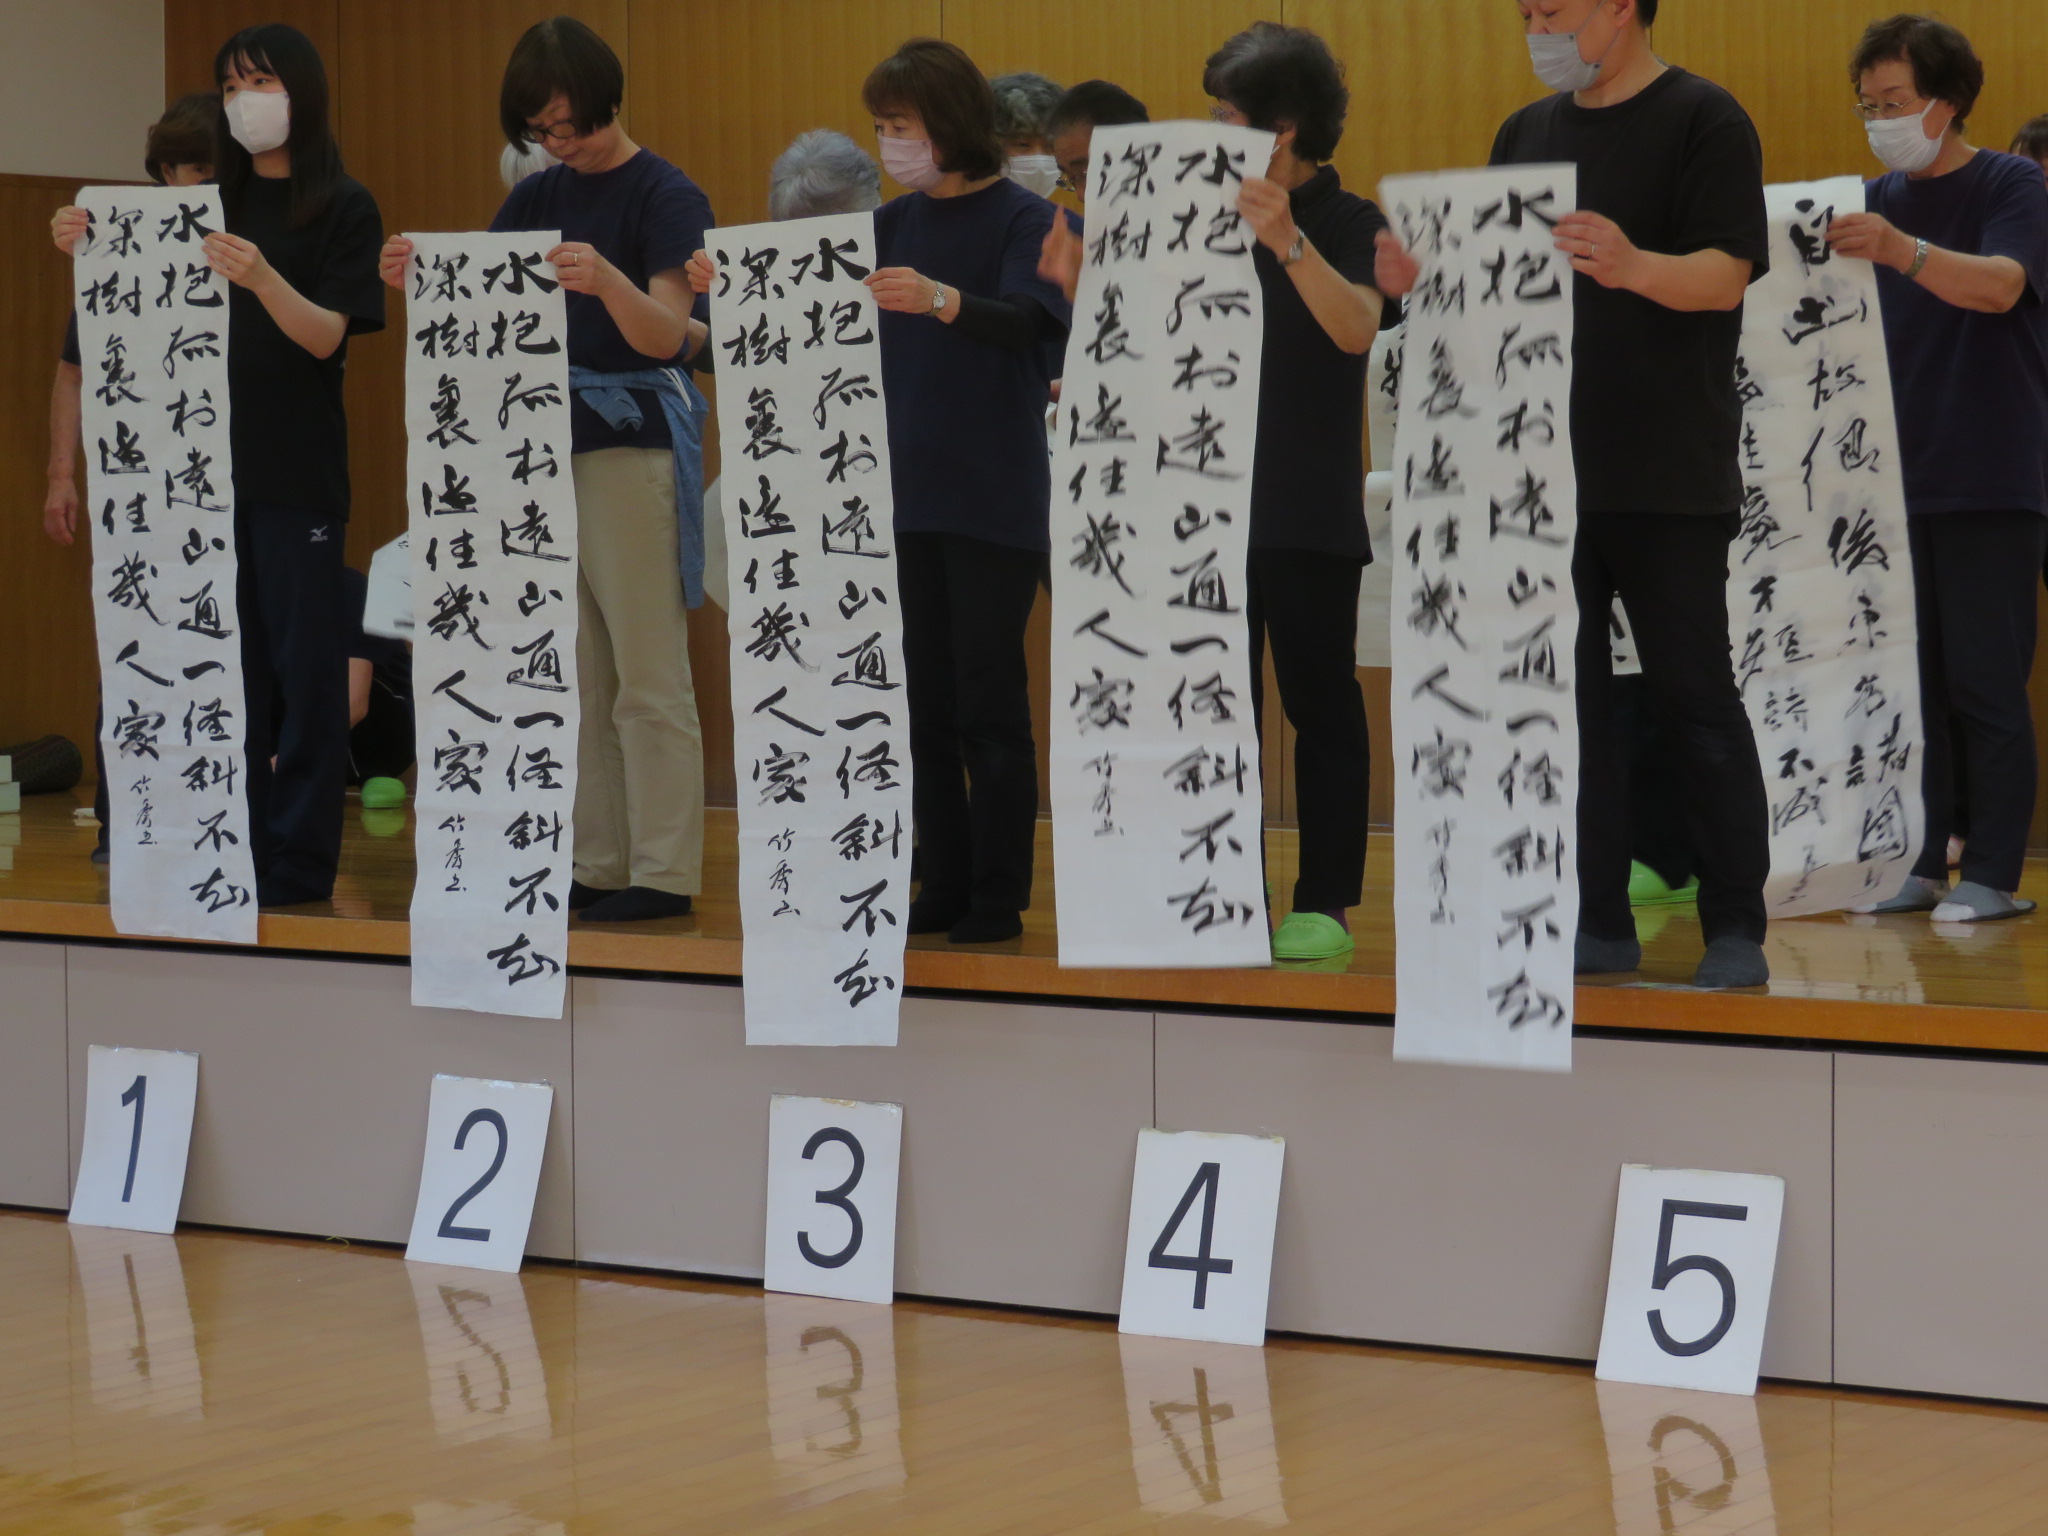 水抱孤村遠山通一径斜不知
深樹裏還住幾人家 竹秀書
水抱孤村遠山通一径斜不知
深樹裏還住幾人家 竹秀書
水抱孤村遠山通一径斜不知
深樹裏還住幾人家 竹秀書
水抱孤村遠山通一径斜不知
深樹裏還住幾人家 竹秀書
水抱孤村遠山通一径斜不知
深樹裏還住幾人家 竹秀書
1
2
3
4
5